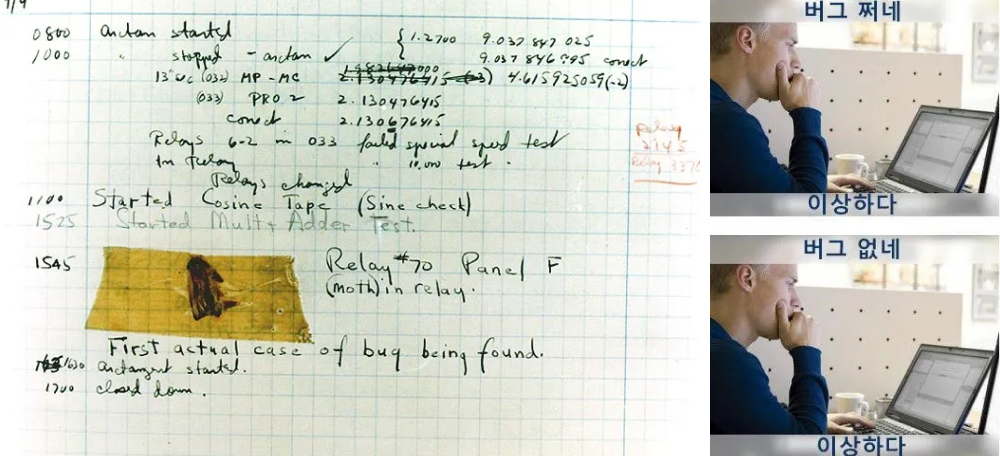 9/9
0800 Arctan started
1000 " stopped - arctan ✓
{ 1.2700 9.037 847 025
9.037 846 995 correct
13"uc (032) MP - MC 2.130476415 (-3) 4.615925059(-2)
(033) PRO 2 2.130476415
correct 2.130676415
Relays 6-2 in 033 failed special speed test
In relay " 10.000 test .
Relays changed
Relay
2145
Relay 3370
1100 Started Cosine Tape (Sine check)
1525 Started Mult + Adder Test.
1545 Relay #70 Panel F
(moth) in relay.
First actual case of bug being found.
1630 Arctangent started.
1700 closed down.
버그 쩌네
이상하다
버그 없네
이상하다